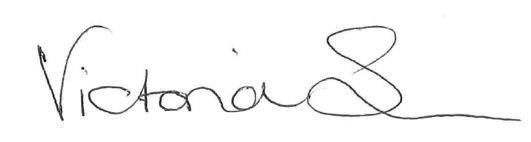 Victoria S